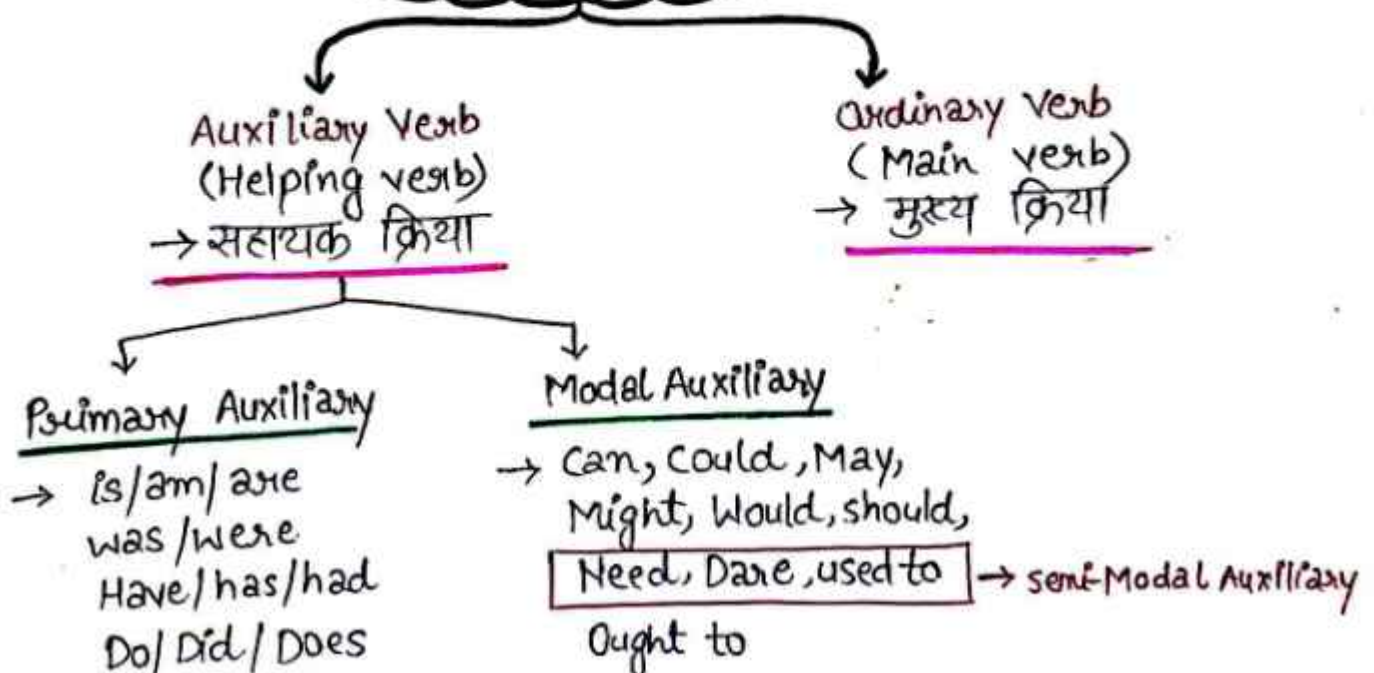 Auxiliary Verb
(Helping verb)
→ सहायक क्रिया
Ordinary Verb
(Main verb)
→ मुख्य क्रिया
Primary Auxiliary
→ is/am/are
was/were
Have/has/had
Do/Did/Does
Modal Auxiliary
→ Can, Could, May,
Might, Would, should,
Need, Dare, used to → semi-Modal Auxiliary
Ought to